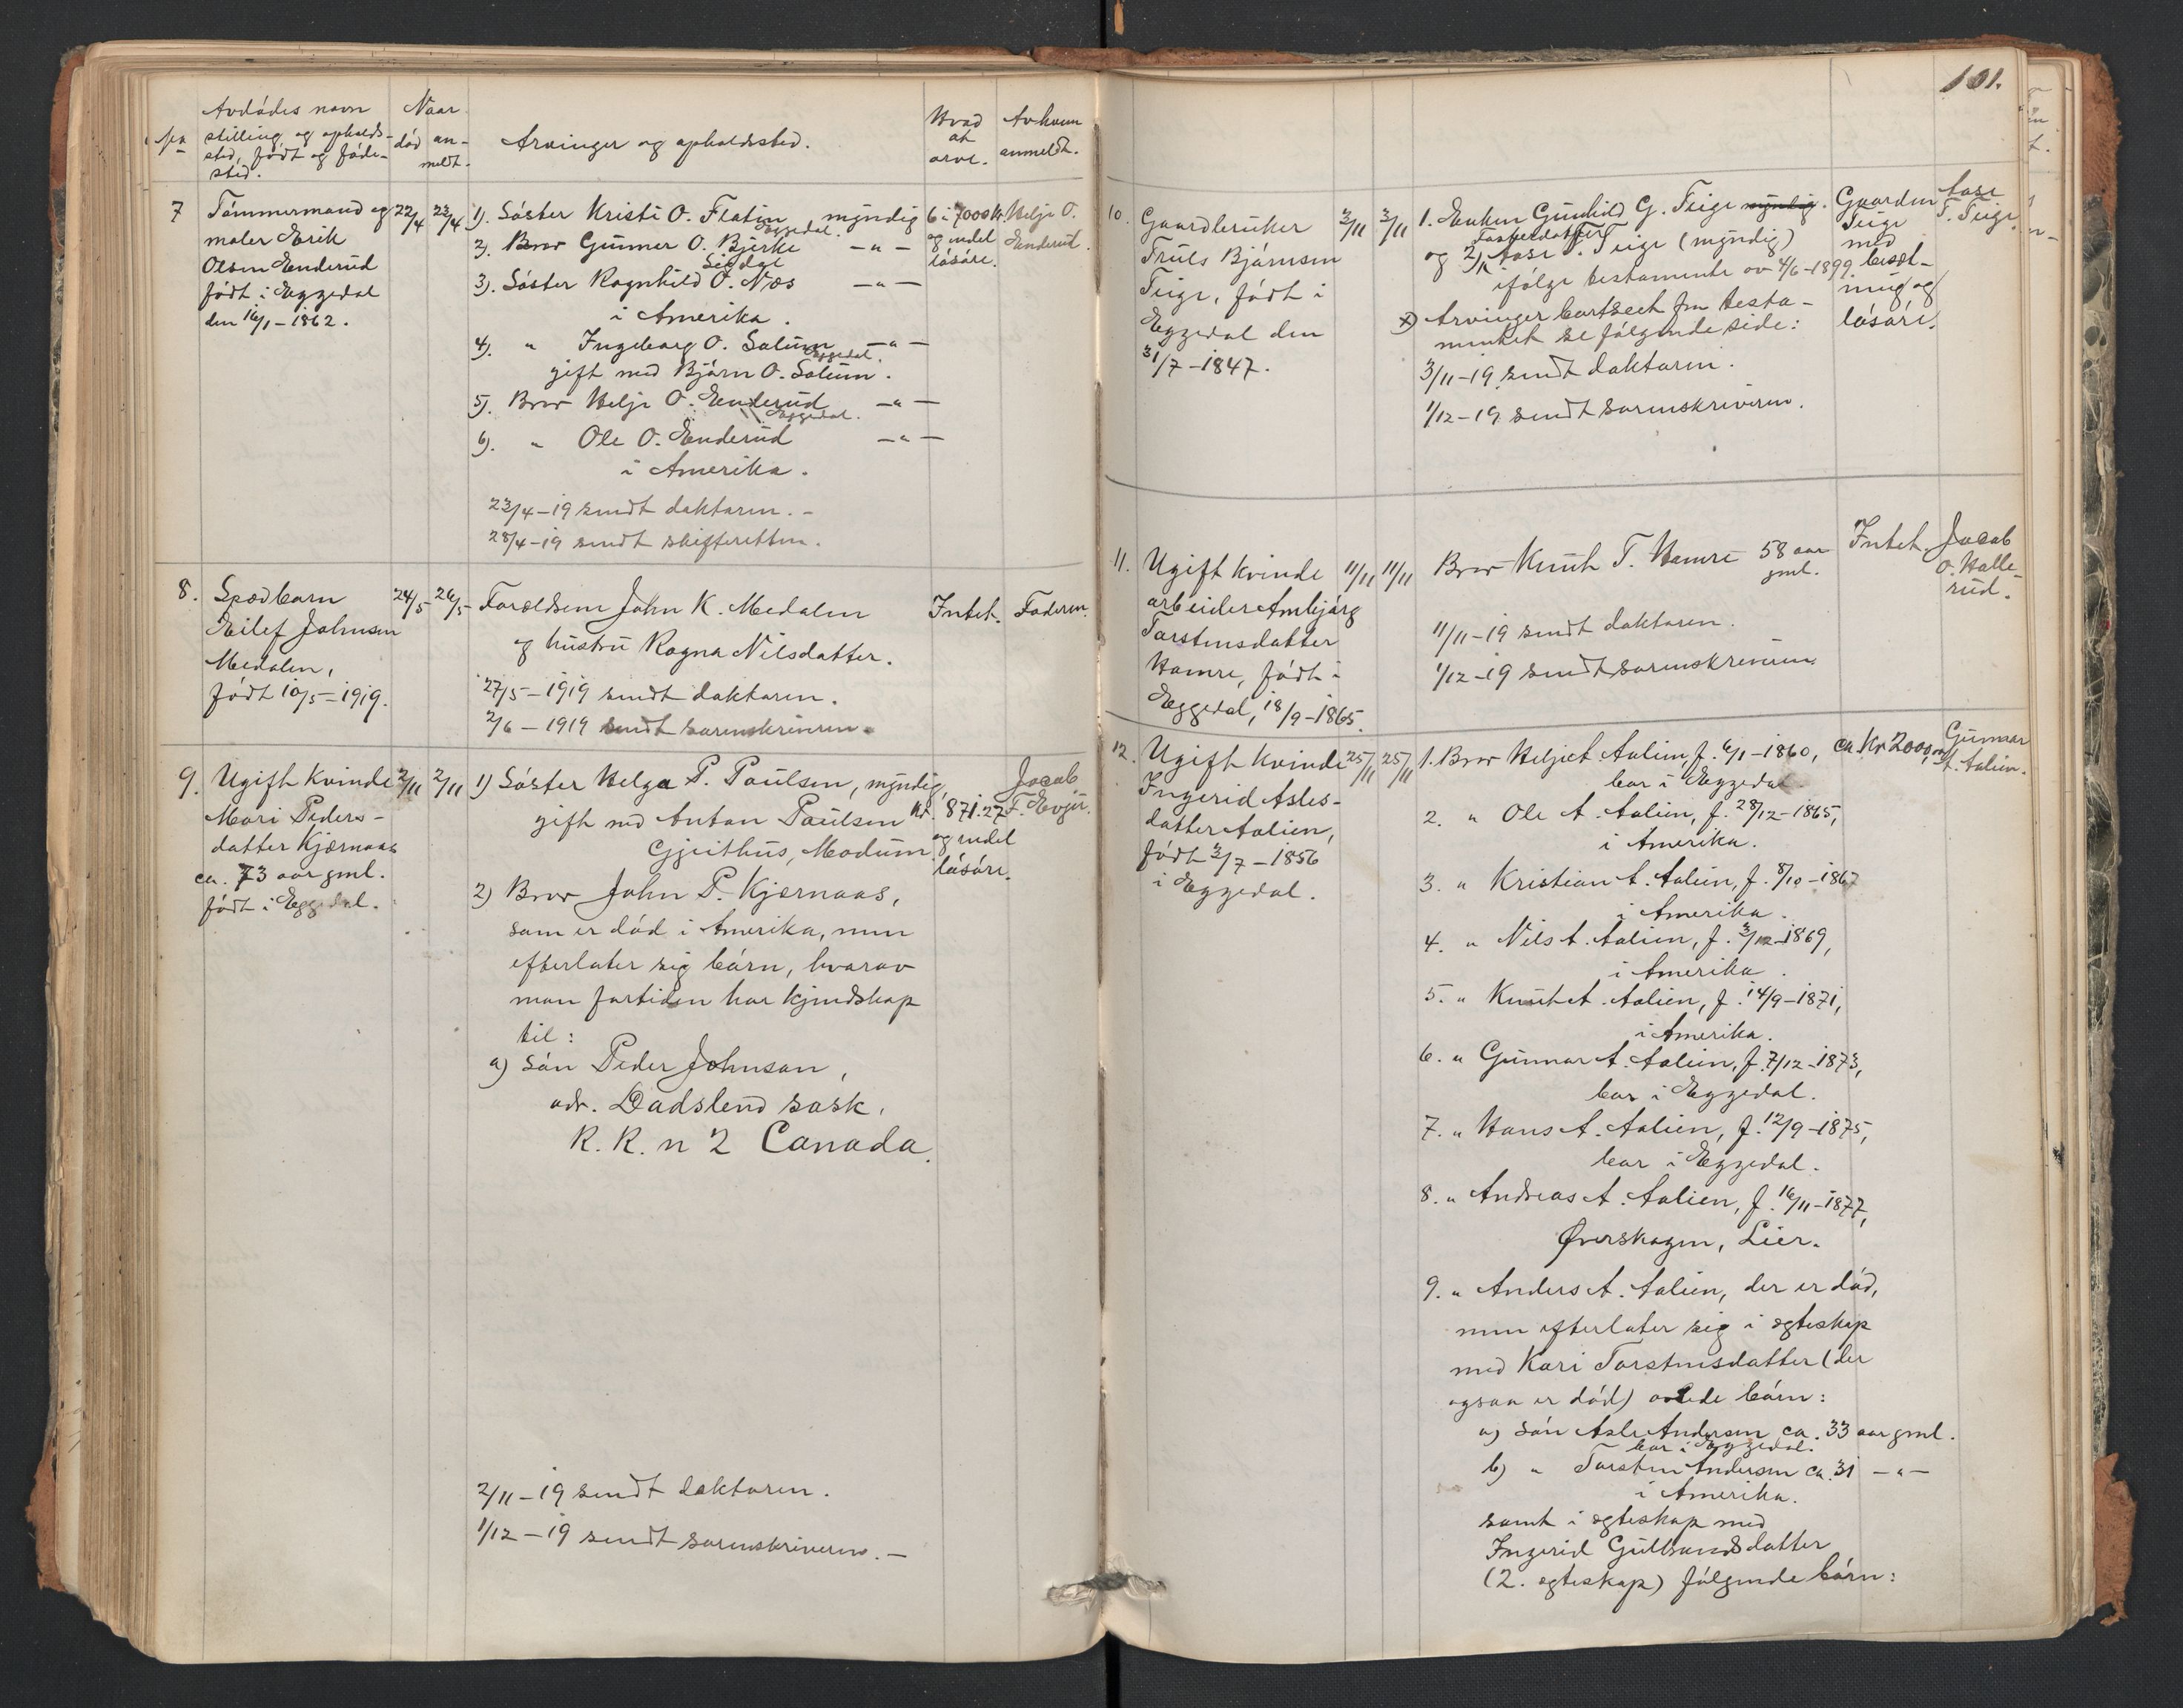 No
Avdødes navn
stilling og opholds-
sted, født og føde-
sted.
Naar
død an-
meldt.
Arvinger og opholdssted.
Hvad
at
arve.
Av hvem
anmeldt.
7
Tømmermand og
maler Erik
Olsen Enderud
født i Eggedal
den 16/1-1862.
22/4 23/4
1). Søster Kristi O. Flatin, myndig
Eggedal.
2). Bror Gunner O. Bjerke —"—
Sigdal
3). Søster Ragnhild O. Næs —"—
i Amerika.
4). " Ingeborg O. Solum —"—
Eggedal.
gift med Bjørn O. Solum.
5). Bror Helje O. Enderud —"—
Eggedal.
6). " Ole O. Enderud —"—
i Amerika.
23/4-19 sendt doktoren. -
28/4-19 sendt skifteretten.
6 à 7000 kr.
og endel
løsøre.
Helje O.
Enderud.
8.
Spædbarn
Eilef Johnsen
Medalen,
født 10/5-1919.
24/5 26/5
Forældrene John K. Medalen
og hustru Ragna Nilsdatter.
27/5-1919 sendt doktoren.
2/6-1919 sendt sorenskriveren.
Intet.
Faderen.
9.
Ugift kvinde
Mari Peders-
datter Kjærnaas
ca. 73 aar gml.
født i Eggedal.
2/11 2/11
1) Søster Helga P. Paulsen, myndig,
gift med Anton Paulsen
Gjeithus, Modum.
2) Bror John P. Kjærnaas,
som er død i Amerika, men
efterlater sig børn, hvorav
man fortiden har kjendskap
til:
a) Søn Peder Johnson,
adr. Dadslend sask.
R. R. n 2 Canada.
2/11-19 sendt doktoren.
1/12-19 sendt sorenskriveren. —
kr. 871.27
og endel
løsøre.
Jacob
F. Evju.
101.
10.
Gaardbruker
Truls Bjørnsen
Teige, født i
Eggedal den
31/7-1847.
3/11 3/11
1. Enken Gunhild G. Teige myndig.
Fosterdatter
og 2) Aase T. Teige (myndig)
ifølge testamente av 4/6-1899.
x) Arvinger bortseet fra testa-
mentet se følgende side:
3/11-19 sendt doktoren.
1/12-19 sendt sorenskriveren.
Gaarden
Teige
med
besæt-
ning og
løsøre.
Aase
T. Teige.
11.
Ugift kvinde
arbeider Ambjørg
Torstensdatter
Hamre, født i
Eggedal, 18/9-1865.
11/11 11/11
Bror Knut T. Hamre 58 aar
gml.
11/11-19 sendt doktoren.
1/12-19 sendt sorenskriveren
Intet.
Jacob
O. Halle-
rud.
12.
Ugift kvinde
Ingerid Asles-
datter Aalien,
født 3/7-1856
i Eggedal.
25/11 25/11
1. Bror Helje A. Aalien, f. 6/1-1860,
bor i Eggedal.
2. " Ole A. Aalien, f. 28/12-1865,
i Amerika.
3. " Kristian A. Aalien, f. 8/10-1867
i Amerika.
4. " Nils A. Aalien, f. 3/12-1869,
i Amerika.
5. " Knut A. Aalien, f. 14/9-1871,
i Amerika.
6. " Gunnar A. Aalien, f. 7/12-1873,
bor i Eggedal.
7. " Hans A. Aalien, f. 12/9-1875,
bor i Eggedal.
8. " Andreas A. Aalien, f. 16/11-1877,
Øverskogen, Lier.
9. " Anders A. Aalien, der er død,
men efterlater sig i egteskap
med Kari Torstensdatter (der
ogsaa er død) avlede børn:
a) Søn Asle Andersen ca. 33 aar gml.
bor i Eggedal.
b) " Torsten Andersen ca. 31 —"—
i Amerika.
samt i egteskap med
Ingerid Gulbrandsdatter
(2. egteskap) følgende børn:
ca. kr 2000,00
Gunnar
A. Aalien.